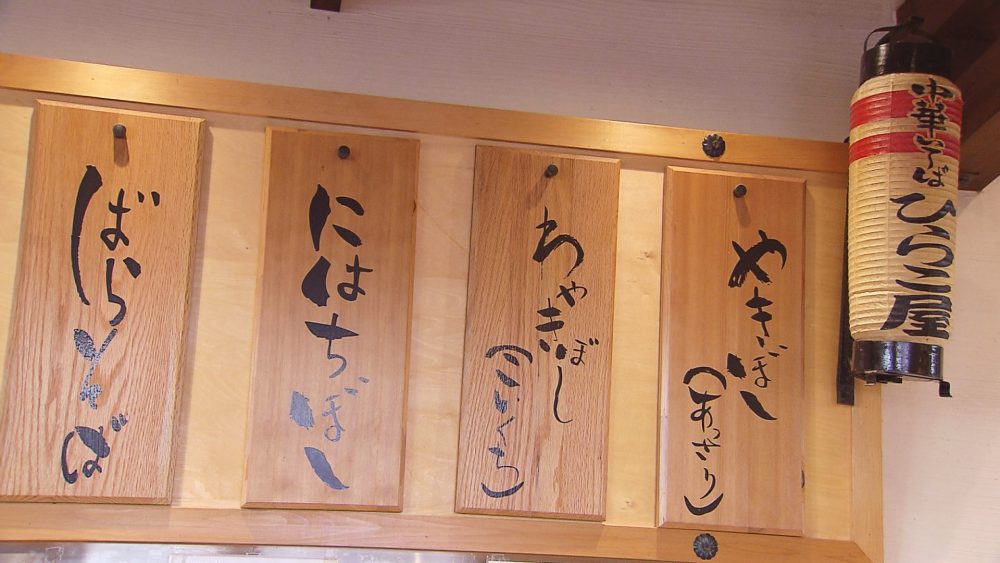 中華そば ひらこ屋
やきぼし
(あっさり)
わやきぼし
(こいくち)
にはちぼし
ばらそば